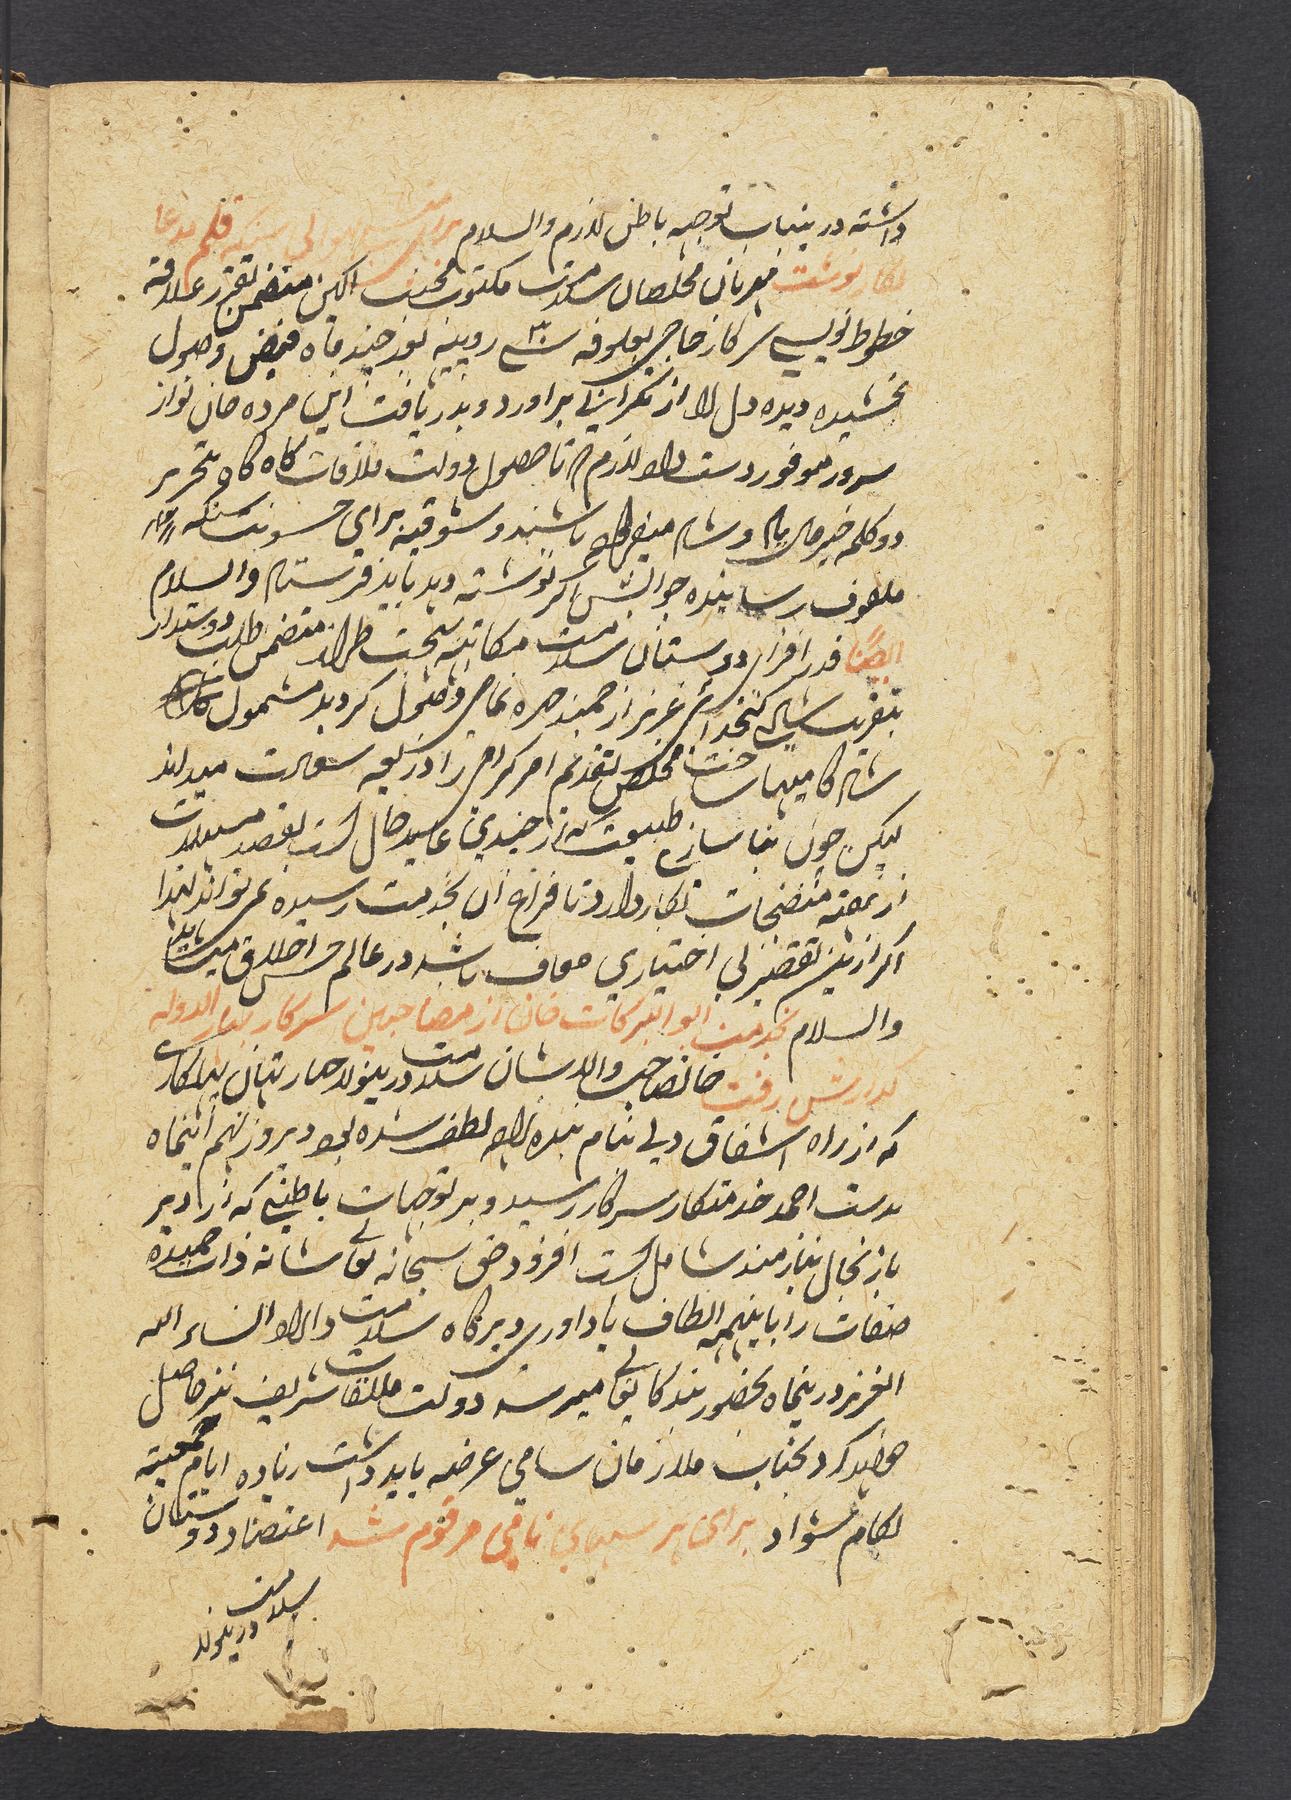 داشته درینباب توجیه باطن لازم والسلام برای سوالی سنکه قلم مدعا
نکار نوشت مهربان مخلصان سلامت مکتوب محبت آکین متضمن تقرر علاقه
خطوط نویسی سرکار خاجی بعلوفه سی روپیه بعد چند ماه فیض وصول
بخشیده دیده دل را از نکرانی براورد و بدریافت این مرده جان نواز
سرور موفور دست داد لازم که تا حصول دولت ملاقات کاه کاه بتحریر
دو کلمه خیرمال یاد و شاد میفرموده باشند و شوقیه برای جسونت سنکه
ملفوف رسانیده جوابش اکر نوشته دهد باید فرستاد والسلام
ایضًا قدر افزای دوستان سلامت مکاتبه بهجت طراز متضمن طلب دوستدار
بتقریب شادی کتخدائی عزیز ارجمند چهره نمای وصول کردید مشمول
شادکامیها ساخت مخلص تقدیم امر کرامی را ذریعه سعادت میداند
لیکن چون بناسازی طبیعت که از چندی عاید حال است بقصد مسهلات
از هفته منضجات بکار دارد تا فراغ آن بخدمت رسیده نمی تواند لهذا
اکر ازین تقصیر بی اختیاری معاف باشد در عالم حسن اخلاق
والسلام بخدمت ابو البرکات خان از مصاحبین سرکار الدوله
کذارش رفت خانصاحب والاشان سلامت درینولا چهار بتهان
که از راه اشفاق دلی بنام بنده لطف شده بود دیروز نهم اینماه
بدست احمد خدمتکار سرکار رسید و بر توجهات باطنی که از دیر
باز بحال نیازمند شامل است افزود حق سبحانه تعالی شانه ذات حمیده
صفات را باینهمه الطاف یاد آوری دیرکاه سلامت داراد انشاء الله
العزیز درینماه بحضور بندکانعالی میرسد دولت ملاقات شریف نیز حاصل
خواهد کرد بجناب ملازمان سامی عرضه باید داشت زیاده ایام جمعیت
بکام شواد برای هر سهای نامی مرقوم شد اعتضاد دوستان
سلامت
درینولا